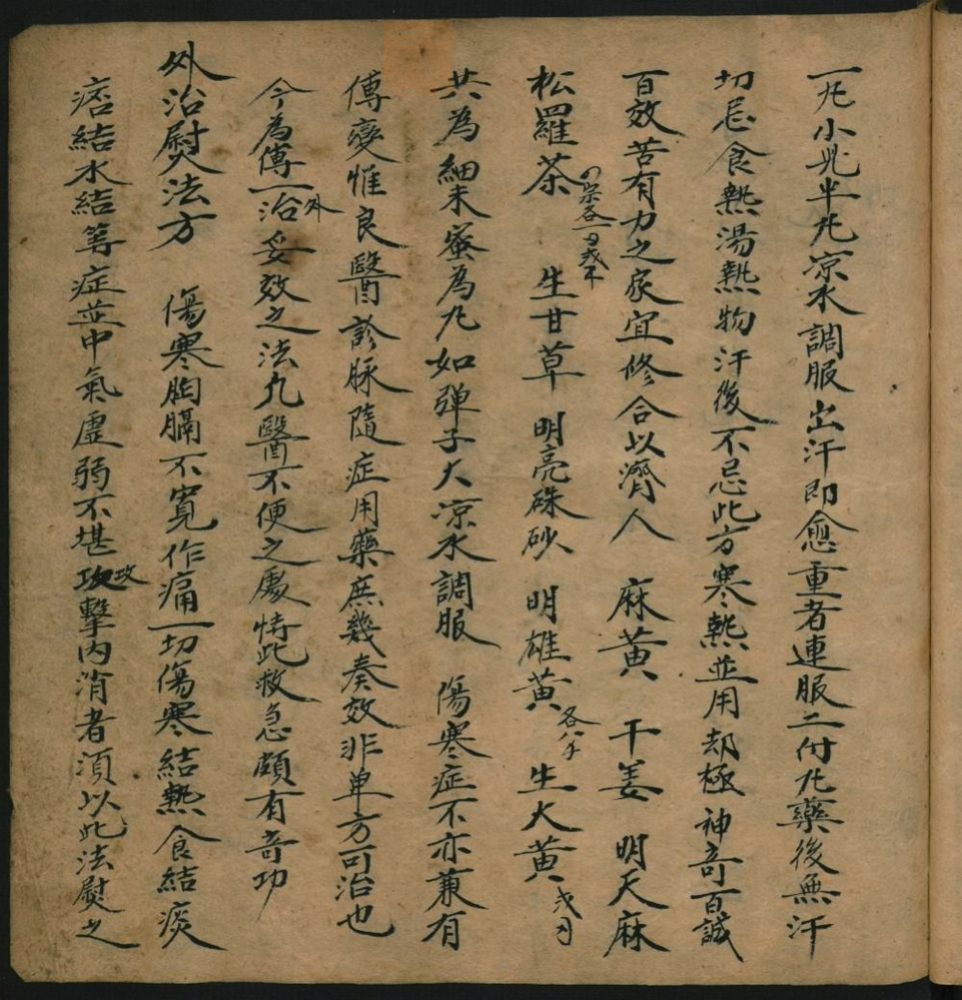 一凢小児半凢凉水調服出汗即愈重者連服二付凢藥後無汗
切忌食熱湯熱物汗後不忌此方寒熱並用却極神奇百誠
百效苦有力之家宜修合以濟人　麻黄　干姜　明天麻
松羅茶　生甘草　明亮硃砂　明雄黄各八千　生大黄
共為細末蜜為凢如弹子大凉水調服　傷寒症不亦兼有
傳變惟良醫診脉隨症用藥庶幾奏效非单方可治也
今為傅一外治妥效之法凢醫不便之處恃此救急頗有奇功
外治熨法方　傷寒胸膈不寬作痛一切傷寒結熱食結痰
痞結水結等症並中氣虛弱不堪攻擊内消者須以此法熨之